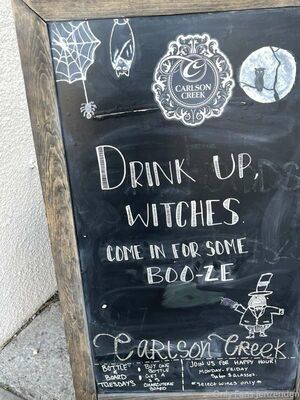 CARLSON
CREEK
DRINK UP,
WITCHES.
COME IN FOR SOME
BOO-ZE
Carlson Creek
BOTTLE &
BOARD
TUESDAYS
BUY ONE
BOTTLE
GET A
CHARCUTERIE
BOARD
JOIN US FOR HAPPY HOUR!
MONDAY-FRIDAY
GLASSES
*SELECT WINES ONLY*